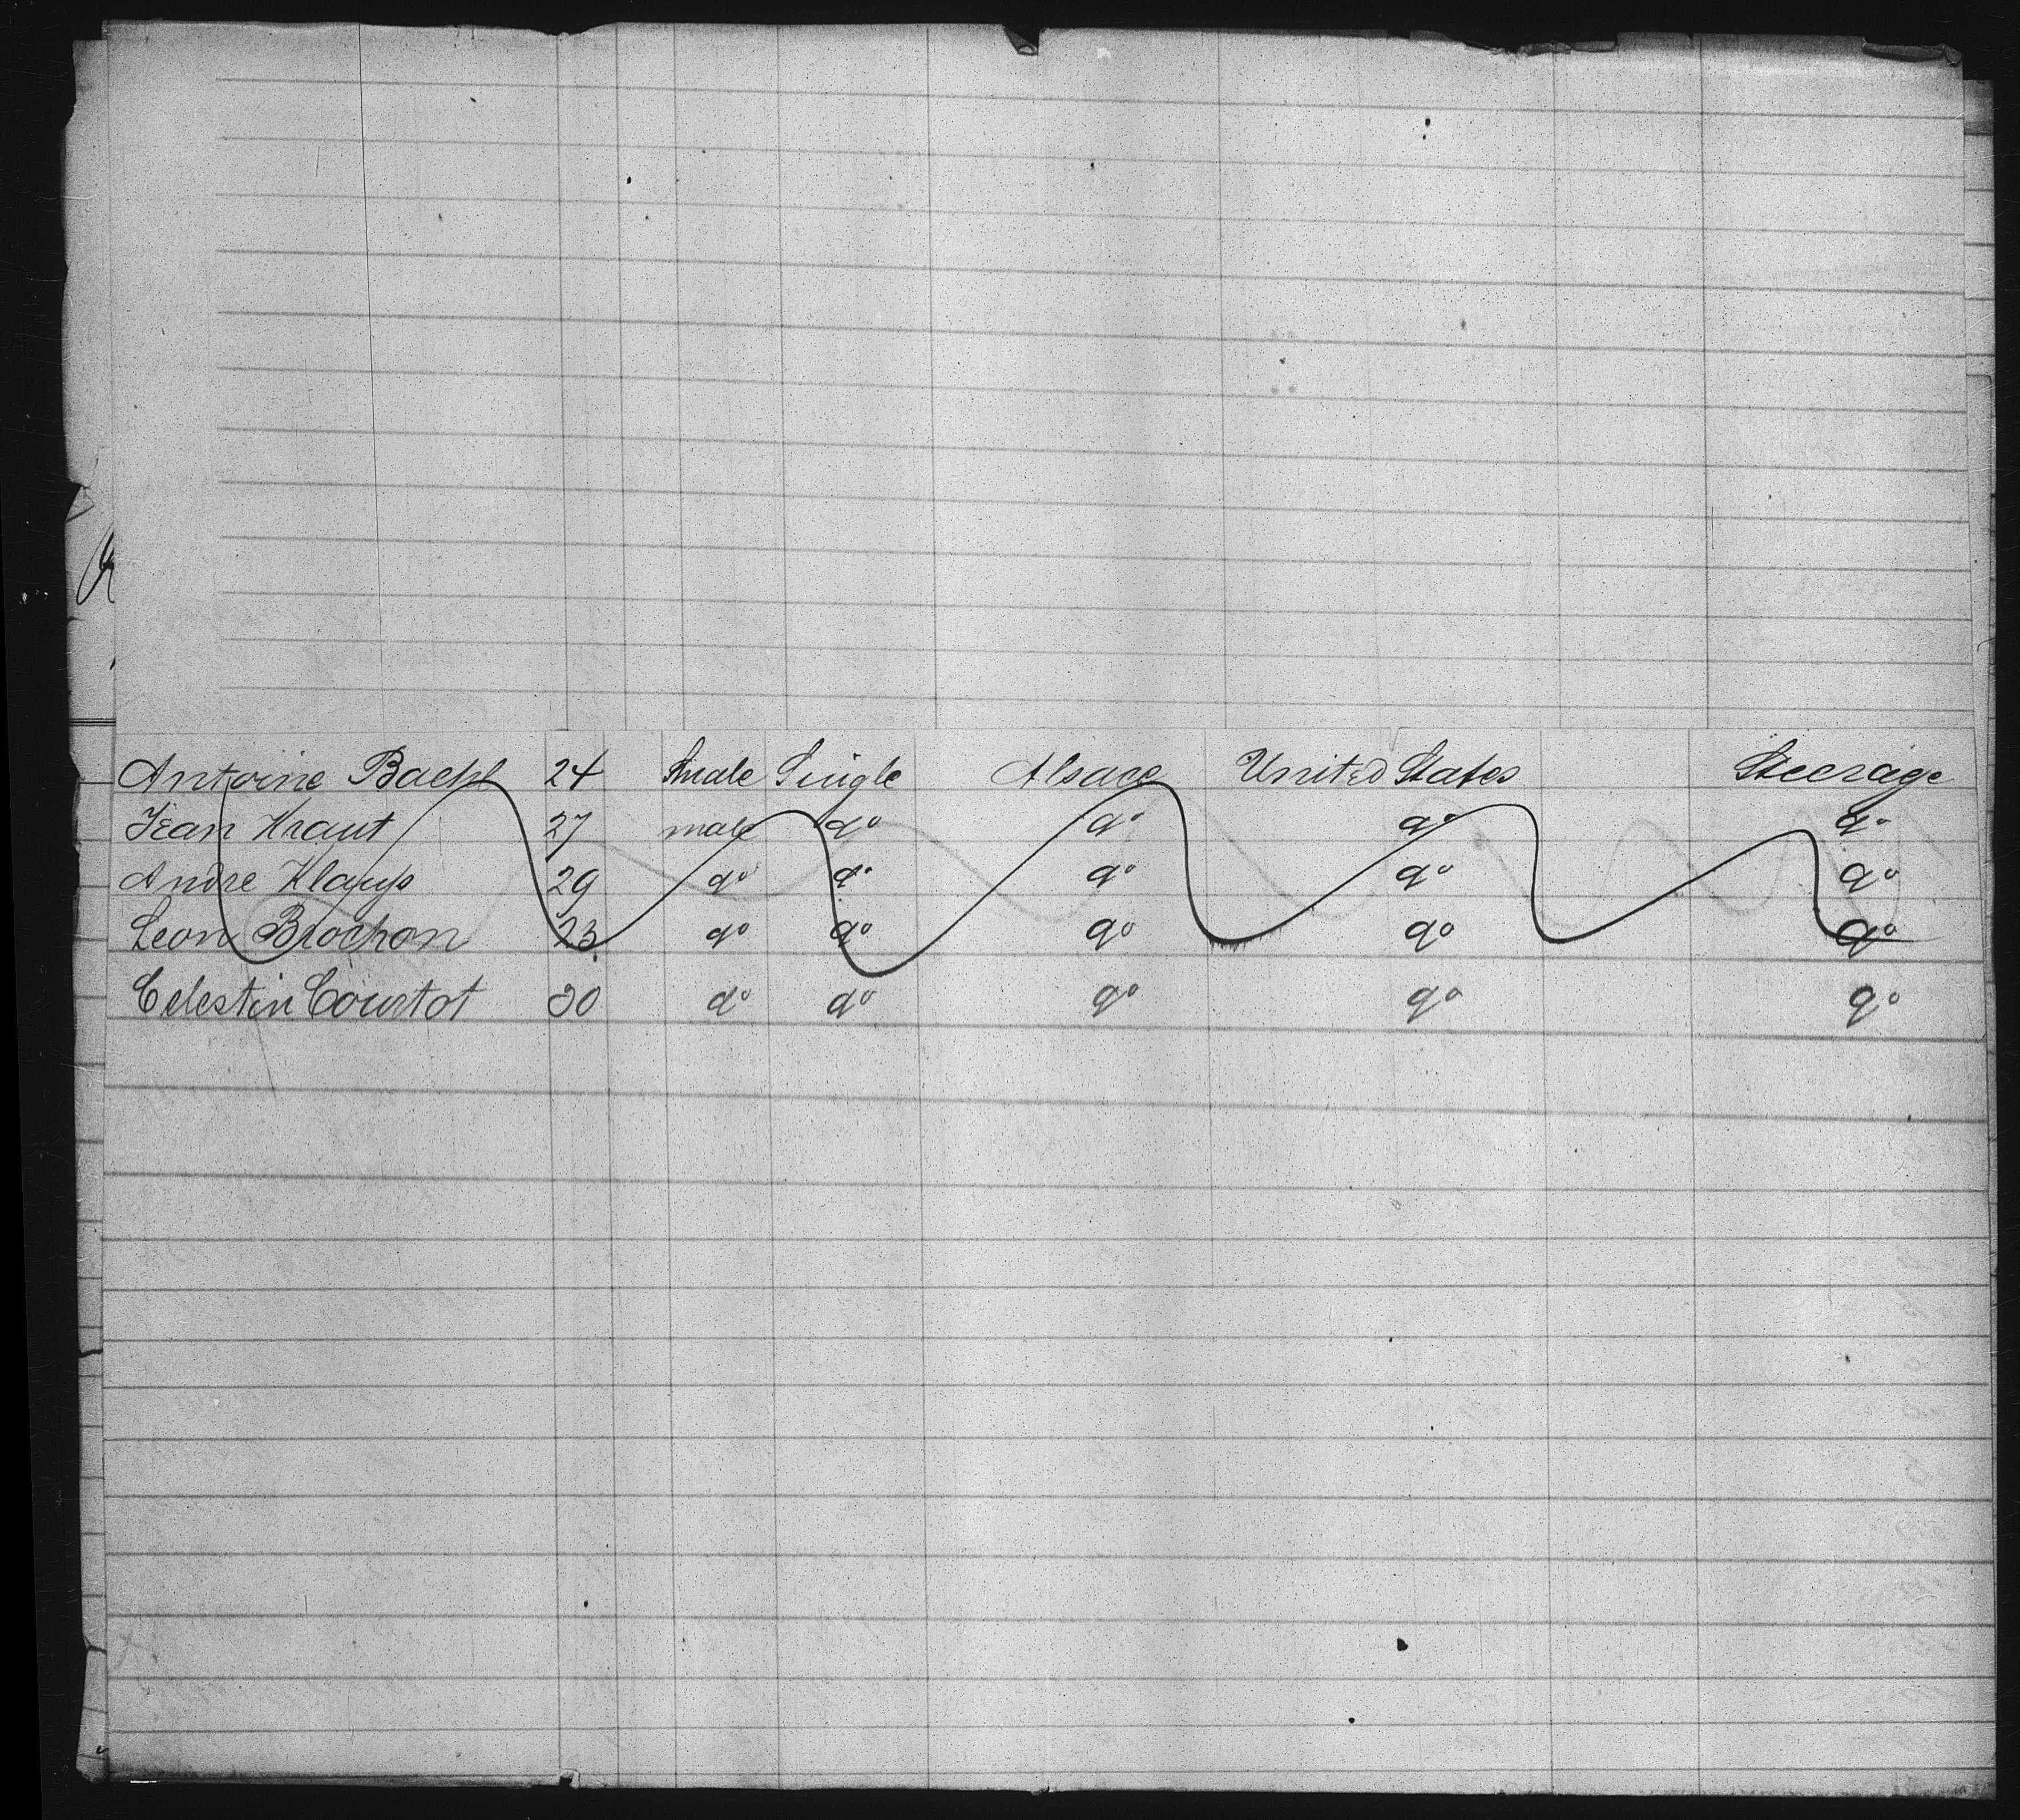 Antoine Baehl 24 male Single Alsace United States Steerage
Jean Kraut 27 male do do do do
Andre 29 do do do do do
Leon Brochon 23 do do do do do
Celestin Courtot 30 do do do do do